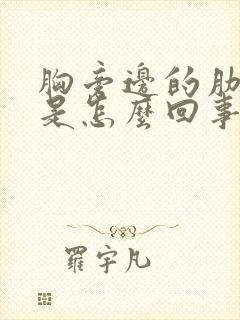 胸旁邊的肋
是怎麼回事
羅宇凡